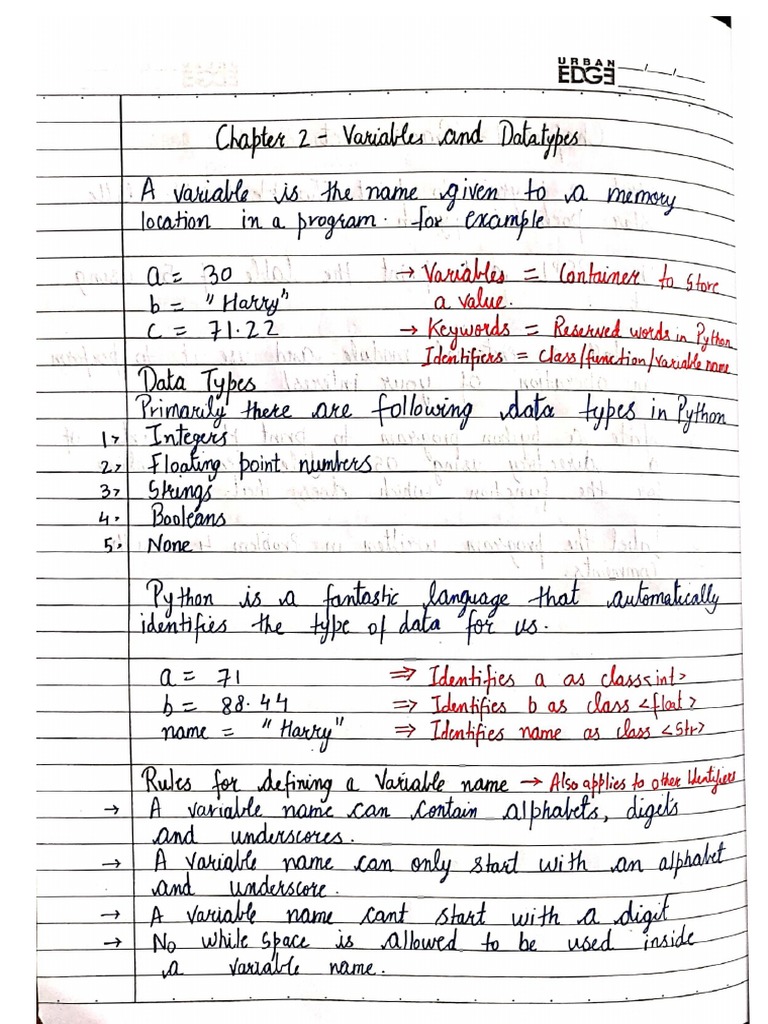 URBAN
EDGE
Chapter 2 - Variables and Datatypes
A variable is the name given to a memory
location in a program. for example
a = 30 → Variables = Container to store
b = "Harry" a value.
c = 71.22 → Keywords = Reserved words in Python
Identifiers = class/function/variable name
Data Types
Primarily there are following data types in Python
1> Integers
2> Floating point numbers
3> Strings
4> Booleans
5. None
Python is a fantastic language that automatically
identifies the type of data for us.
a = 71 ⇒ Identifies a as class<int>
b = 88.44 ⇒ Identifies b as class <float>
name = "Harry" ⇒ Identifies name as class <str>
Rules for defining a Variable name → Also applies to other Identifiers
→ A variable name can contain alphabets, digits
and underscores.
→ A variable name can only start with an alphabet
and underscore.
→ A variable name cant start with a digit
→ No while space is allowed to be used inside
a variable name.